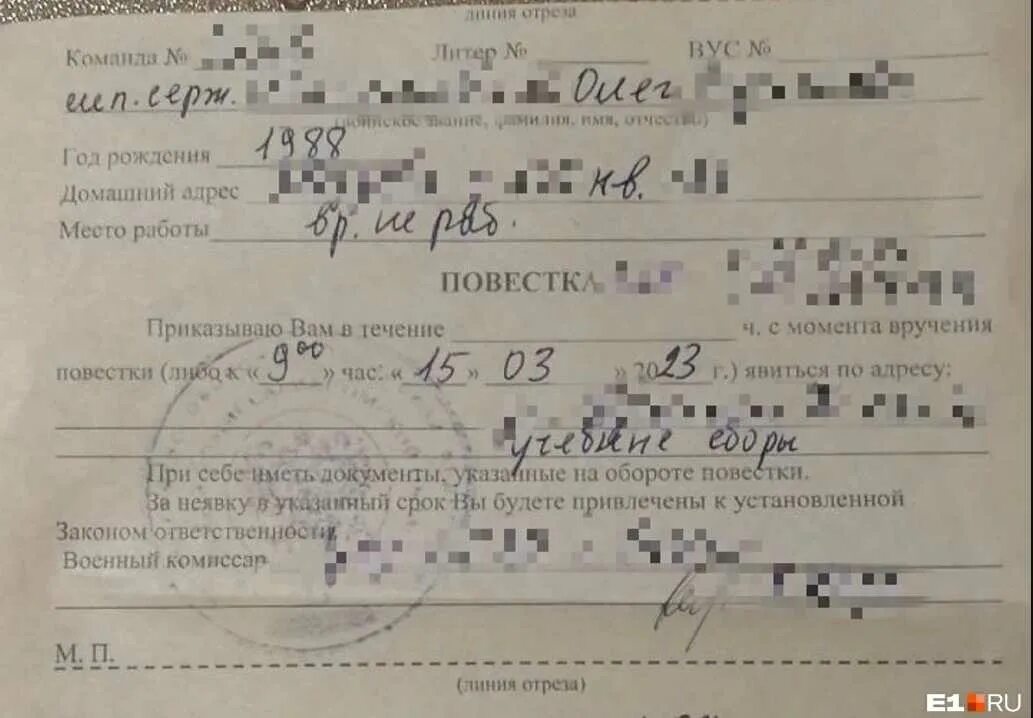 линия отреза
Команда № Литер № ВУС №
мл. серж. Олег
(воинское звание, фамилия, имя, отчество)
Год рождения 1988
Домашний адрес кв.
Место работы вр. не раб.
ПОВЕСТКА
Приказываю Вам в течение ч. с момента вручения
повестки (либо к «9⁰⁰» час: «15» 03 » 2023 г.) явиться по адресу:
учебные сборы
При себе иметь документы, указанные на обороте повестки.
За неявку в указанный срок Вы будете привлечены к установленной
Законом ответственности.
Военный комиссар
М. П.
(линия отреза)
E1.RU